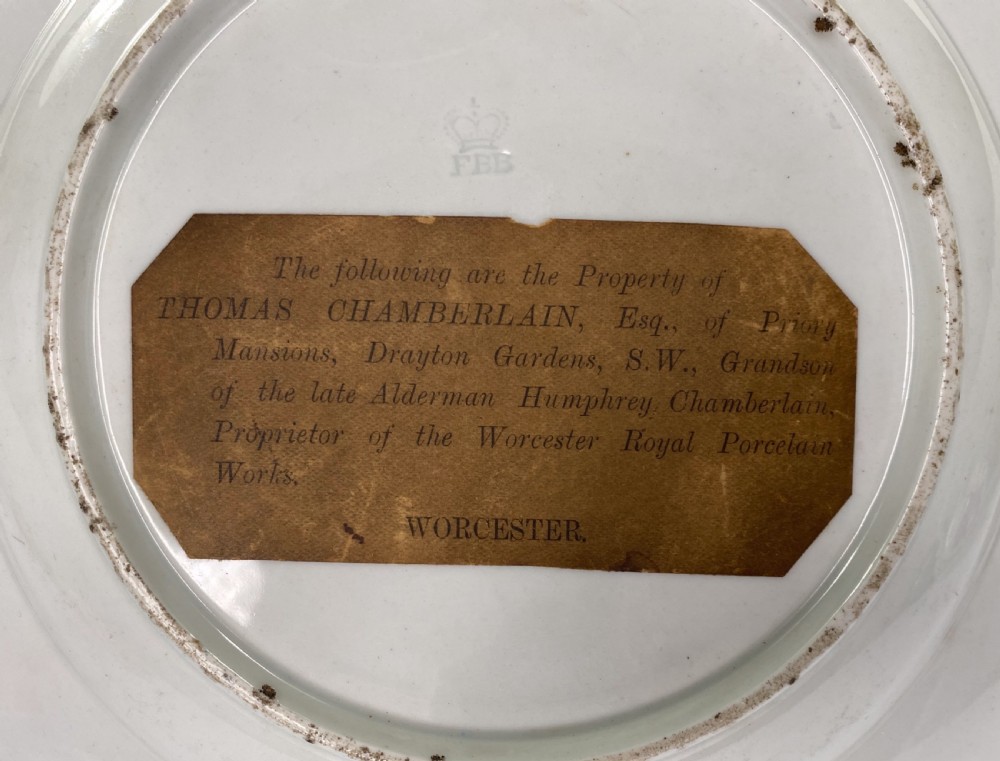 FBB
The following are the Property of
THOMAS CHAMBERLAIN, Esq., of Priory
Mansions, Drayton Gardens, S.W., Grandson
of the late Alderman Humphrey Chamberlain,
Proprietor of the Worcester Royal Porcelain
Works.
WORCESTER.